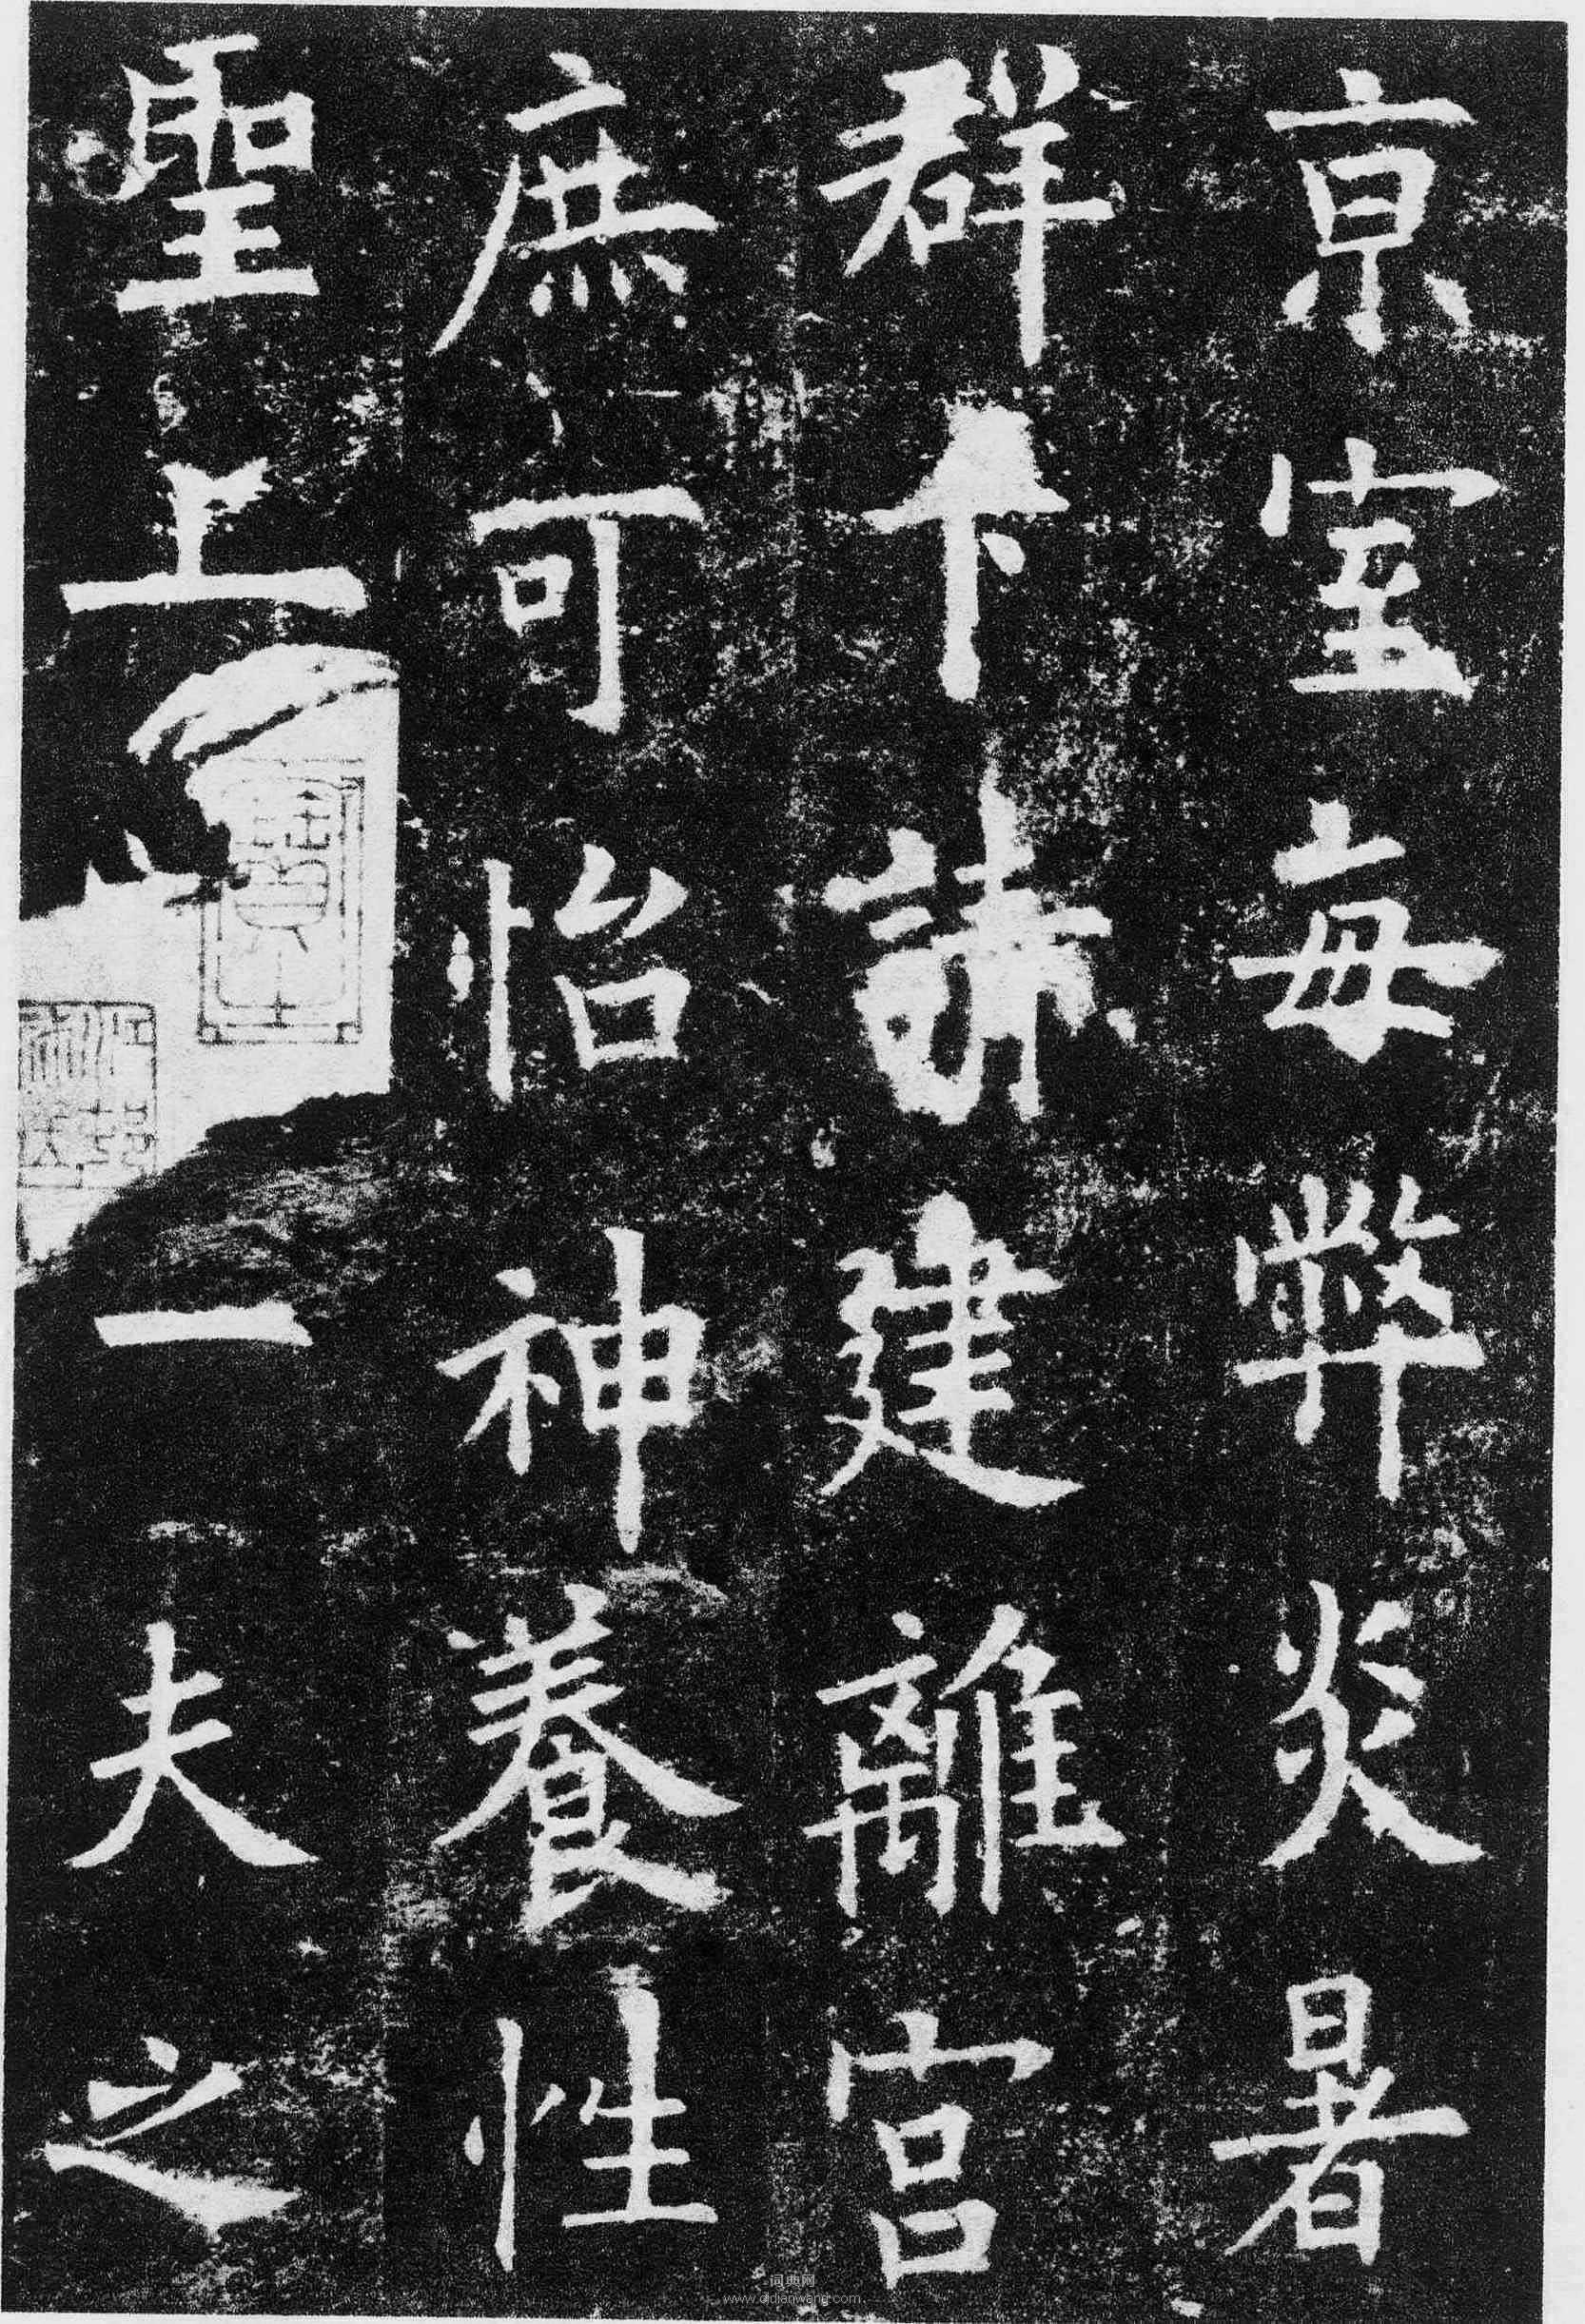 京室每弊炎暑
群下請建離宮
庶可怡神養性
聖上
一夫之
词典网
www.cidianwang.com